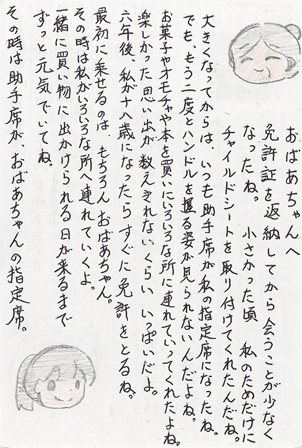 おばあちゃんへ
免許証を返納してから会うことが少なく
なったね。小さかった頃 私のためだけに
チャイルドシートを取り付けてくれたんだね。
大きくなってからは、いつも助手席が私の指定席になったね。
でも、もう二度とハンドルを握る姿が見られないんだよね。
お菓子やオモチャや本を買いにいろいろな所に連れていってくれたよね。
楽しかった思い出が数えきれないくらい いっぱいだよ。
六年後、私が十八歳になったらすぐに免許をとるね。
最初に乗せるのは もちろん おばあちゃん。
その時は私がいろいろな所へ連れていくよ。
一緒に買い物に出かけられる日が来るまで
ずっと元気でいてね。
その時は助手席が おばあちゃんの指定席。